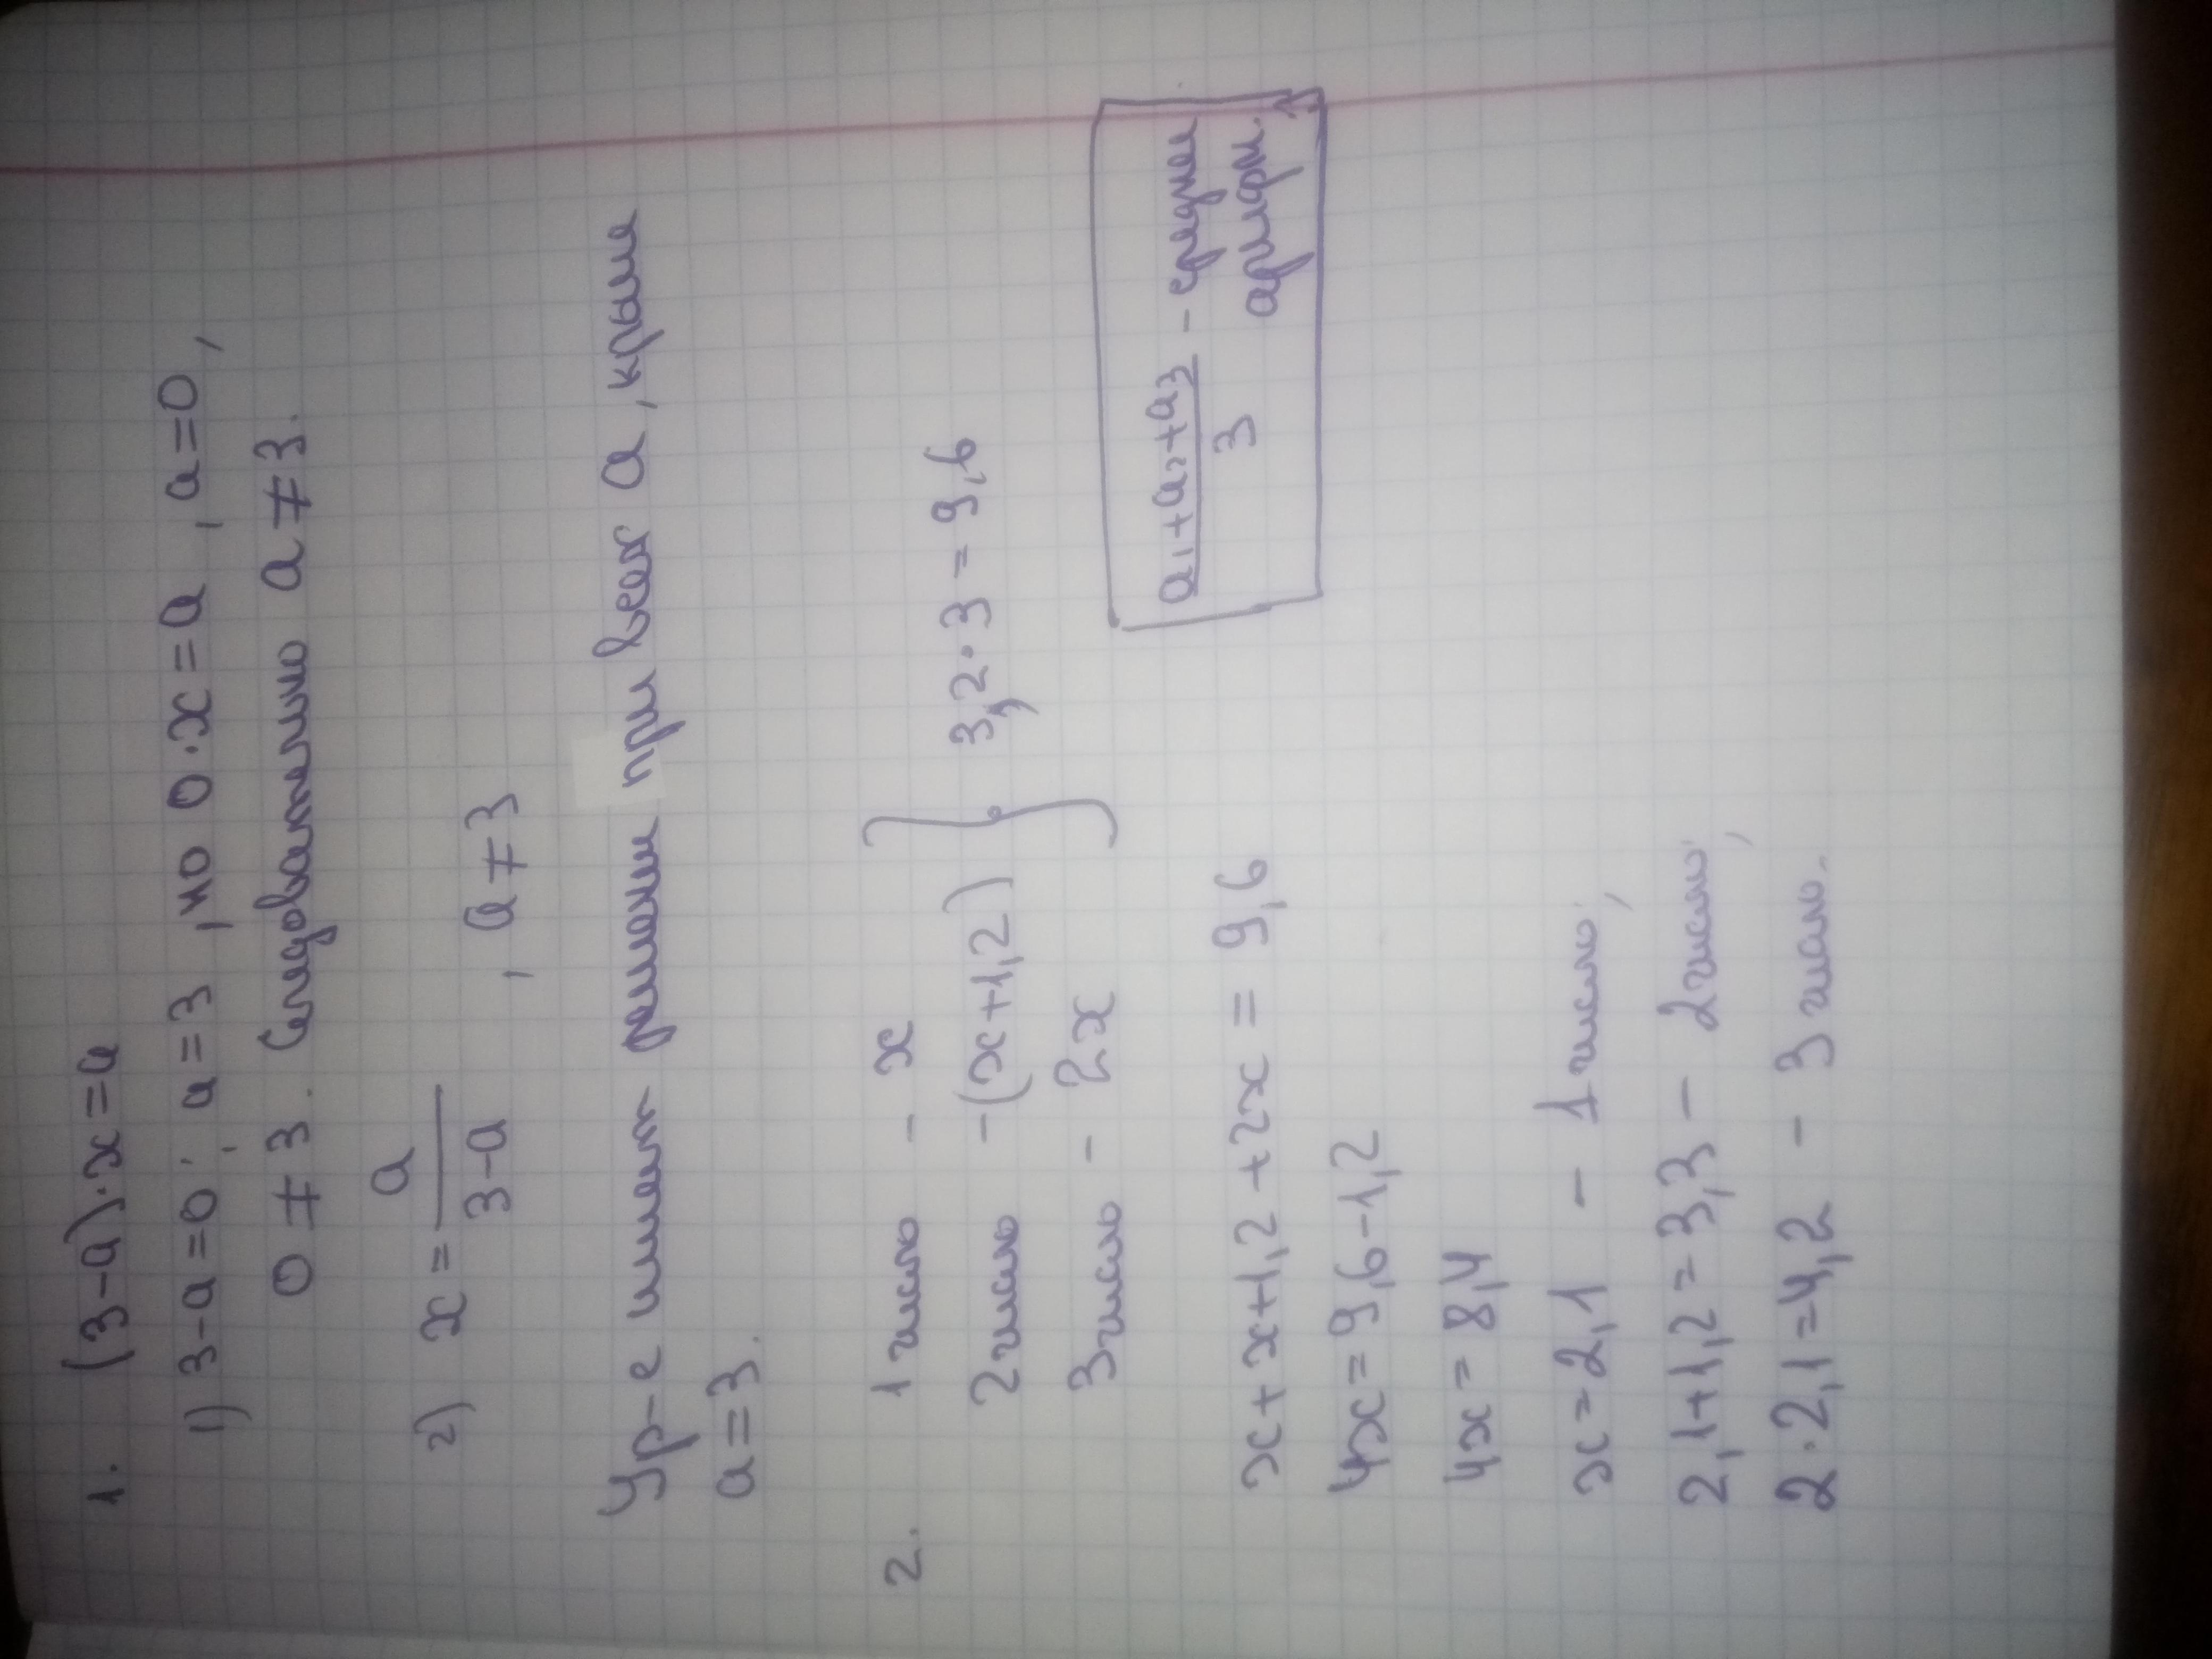 1. (3-a)·x=a
1) 3-a=0; a=3, но 0·x=a, a=0,
0≠3. Следовательно a≠3.
2) x = a/(3-a), a≠3
Ур-е имеет решения при всех a, кроме
a=3.
2. 1 число - x
2 число - (x+1,2)
3 число - 2x
3,2·3=9,6
x+x+1,2+2x=9,6
(a1+a2+a3)/3 - среднее
арифм.
4x=9,6-1,2
4x=8,4
x=2,1 - 1 число,
2,1+1,2=3,3 - 2 число,
2·2,1=4,2 - 3 число.